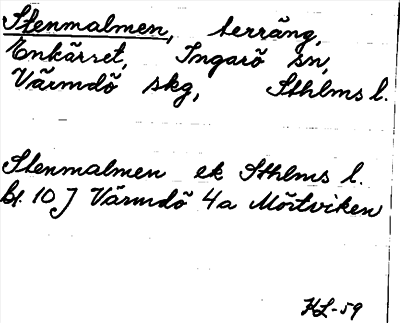 Stenmalmen, terräng,
Enkärret, Ingarö sn,
Värmdö skg, Sthlms l.
Stenmalmen ek Sthlms l.
bl. 10 J Värmdö 4a Mörtviken
KL-59